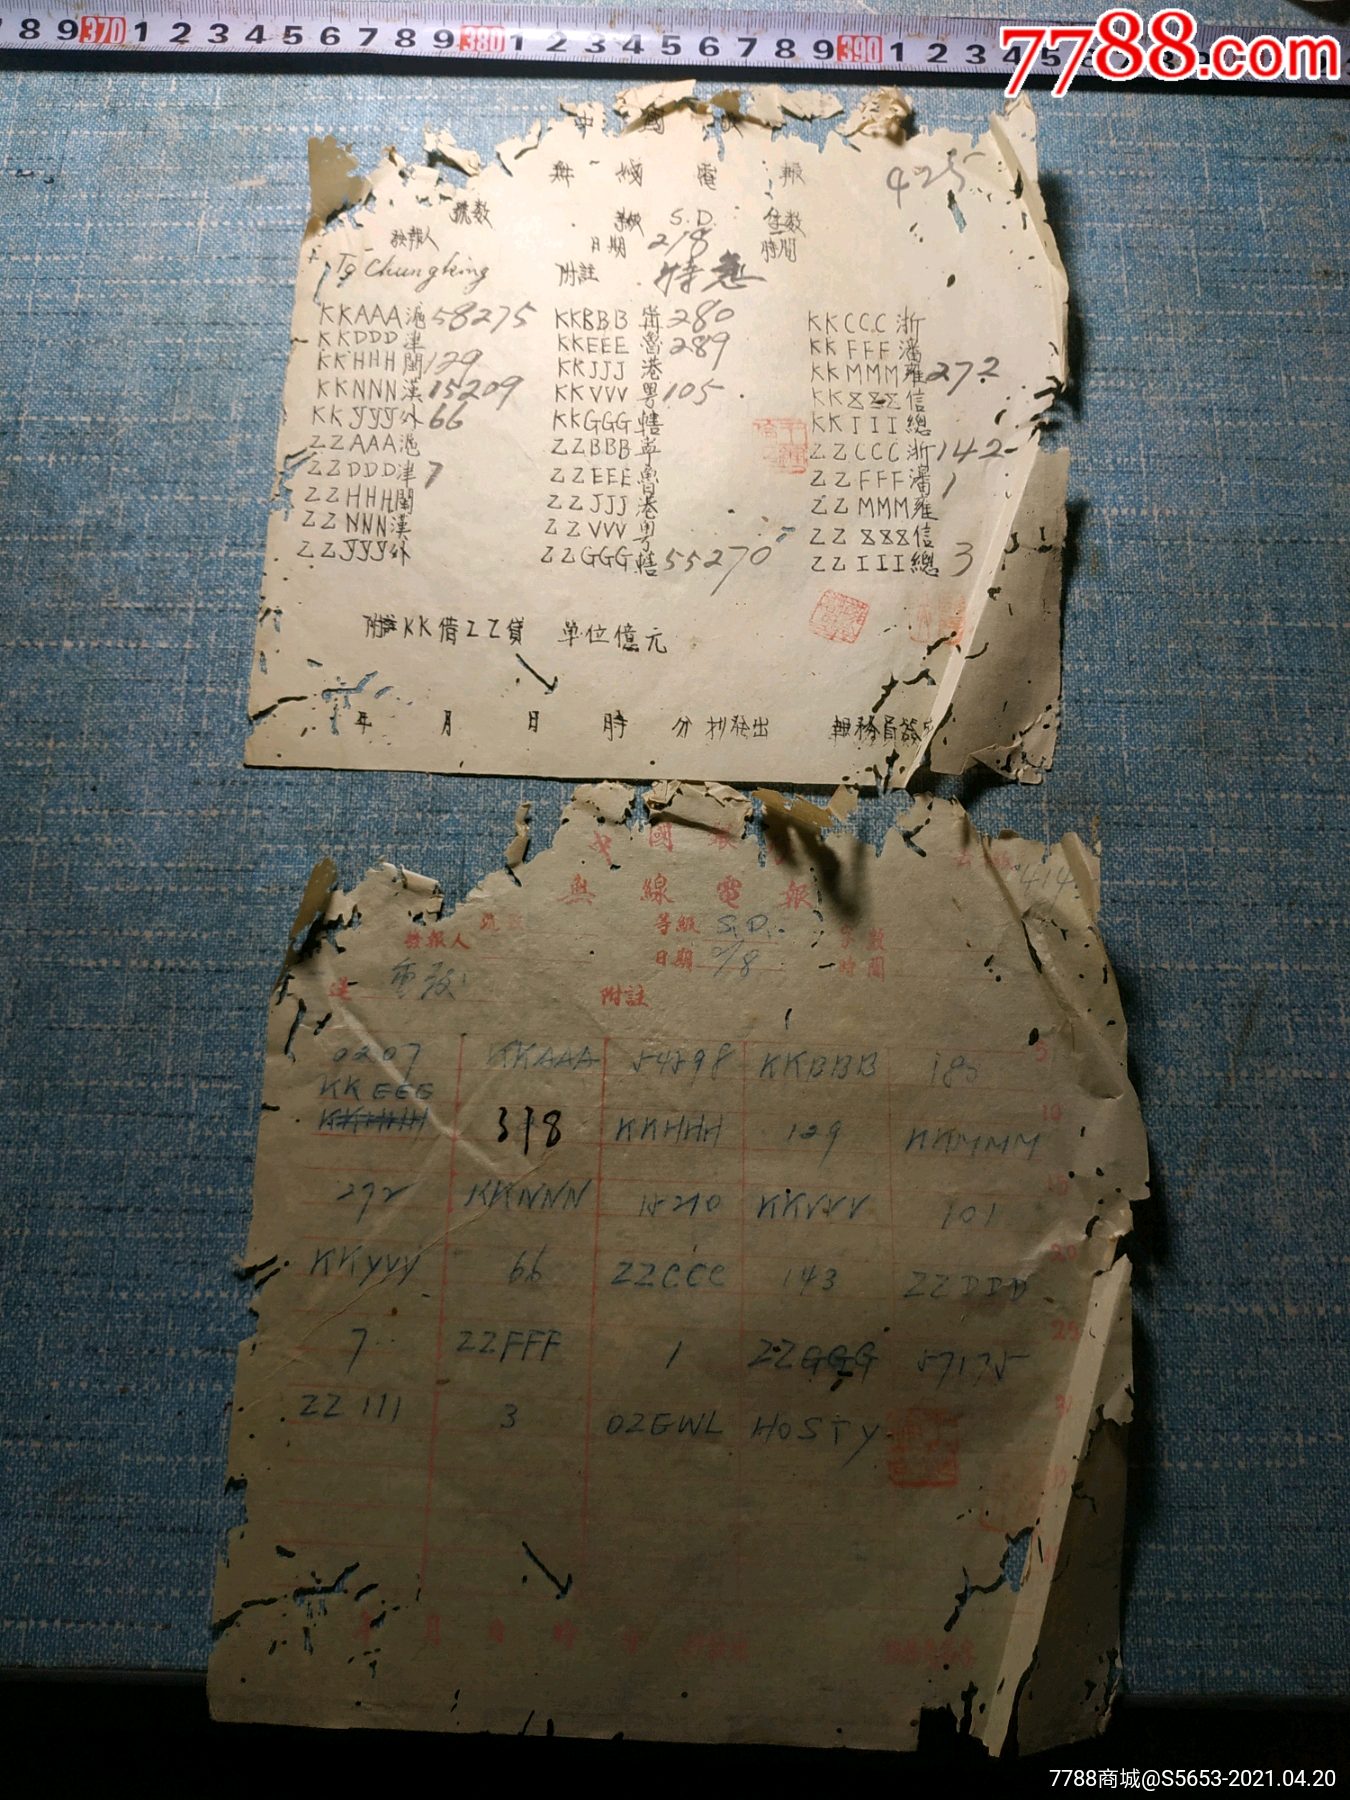 8 9 370 1 2 3 4 5 6 7 8 9 380 1 2 3 4 5 6 7 8 9 390 1 2 3 4 5
7788.com
中國
無線電報
425
號數 等級 S.D. 隻數
發報人 日期 2/8 時間
To Chungking 附註 特急
KKAAA滬58275 KKBBB 280 KKCCC浙
KKDDD津 KKEEE魯289 KKFFF瀋
KKHHH閩129 KKJJJ港 KKMMM雍272
KKNNN漢15209 KKVVV粤105 信
KKYYY外66 KKGGG轄 KKIII總
ZZAAA滬 ZZBBB ZZCCC浙142
ZZDDD津7 ZZEEE魯 ZZFFF瀋1
ZZHHH閩 ZZJJJ港 ZZMMM雍
ZZNNN漢 ZZVVV粤 信
ZZYYY外 ZZGGG轄55270 ZZIII總3
附註KK借ZZ貸 單位億元
年 月 日 時 分抄發出 報務員簽
中國銀
無線電報
414
號數 等級 S.D. 字數
發報人 日期 /8 時間
送 附註
0207 KKAAA 54598 KKBBB 5
KKEEE
KKHHH 318 KKHHH 129 KKMMM 10
272 KKNNN 15210 KKVVV 101 15
KKYYY 66 ZZCCC 143 ZZDDD 20
7 ZZFFF 1 ZZGGG 57175 25
ZZ111 3 OZGWL HOSTY
年 月 日 時 分
7788商城@S5653-2021.04.20